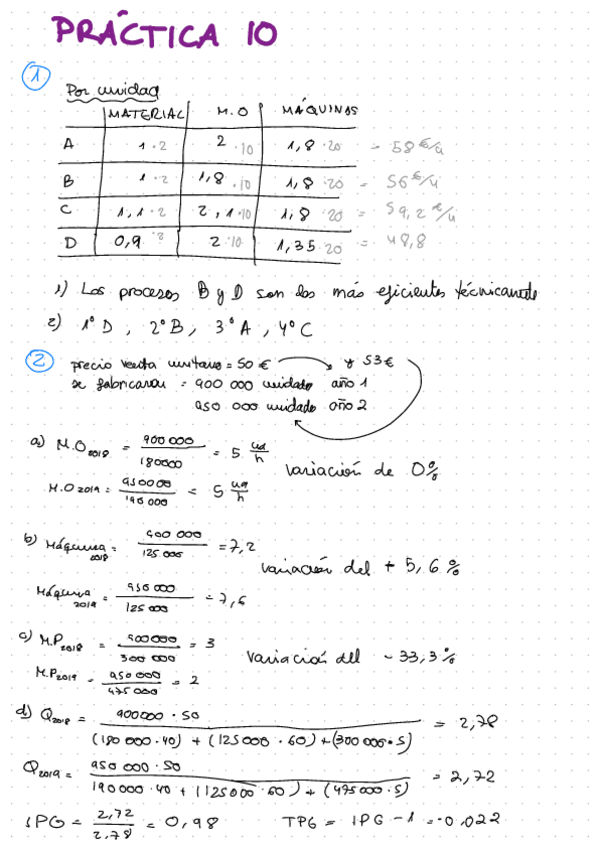 PRÁCTICA 10
1
Por unidad
MATERIAL M.O MÁQUINAS
A 1·2 2·10 1,8·20 = 58 €/u
B 1·2 1,8·10 1,8·20 = 56 €/u
C 1,1·2 2,1·10 1,8·20 = 59,2 €/u
D 0,9·2 2·10 1,35·20 = 48,8
1) Los procesos B y D son los más eficientes técnicamente
2) 1º D, 2º B, 3º A, 4º C
2 precio venta unitario = 50 € y 53 €
se fabricaron = 900 000 unidades año 1
950 000 unidades año 2
a) M.O 2018 = 900 000 / 180000 = 5 ud/h
variación de 0%
M.O 2019 = 950000 / 190 000 = 5 ud/h
b) Máquina 2018 = 900 000 / 125 000 = 7,2
variación del + 5,6 %
Máquina 2019 = 950 000 / 125 000 = 7,6
c) M.P 2018 = 900000 / 300 000 = 3
variación del - 33,3 %
M.P 2019 = 950 000 / 475 000 = 2
d) Q 2018 = 900000 · 50 / (180 000 · 40) + (125000 · 60) + (300 000 · 5) = 2,78
Q 2019 = 950 000 · 50 / 190 000 · 40 + (125000 · 60) + (475 000 · 5) = 2,72
IPG = 2,72 / 2,78 = 0,98 TPG = IPG - 1 = -0,022